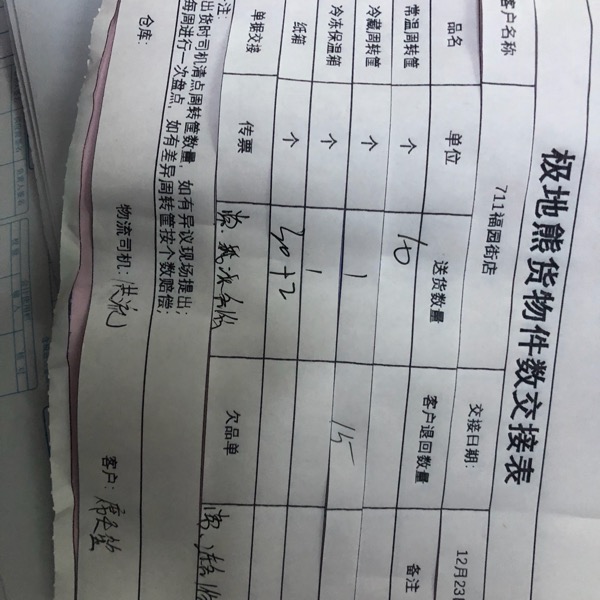 极地熊货物件数交接表
客户名称 711福园街店 交接日期: 12月23日
品名 单位 送货数量 客户退回数量 备注
常温周转筐 个 10
冷藏周转筐 个 1 15
冷冻保温箱 个 1
纸箱 个 30+2
单据交接 传票 欠品单
注:
出货时司机清点周转筐数量,如有异议现场提出;
每周进行一次盘点,如有差异周转筐按个数赔偿;
仓库: 物流司机: 客户: